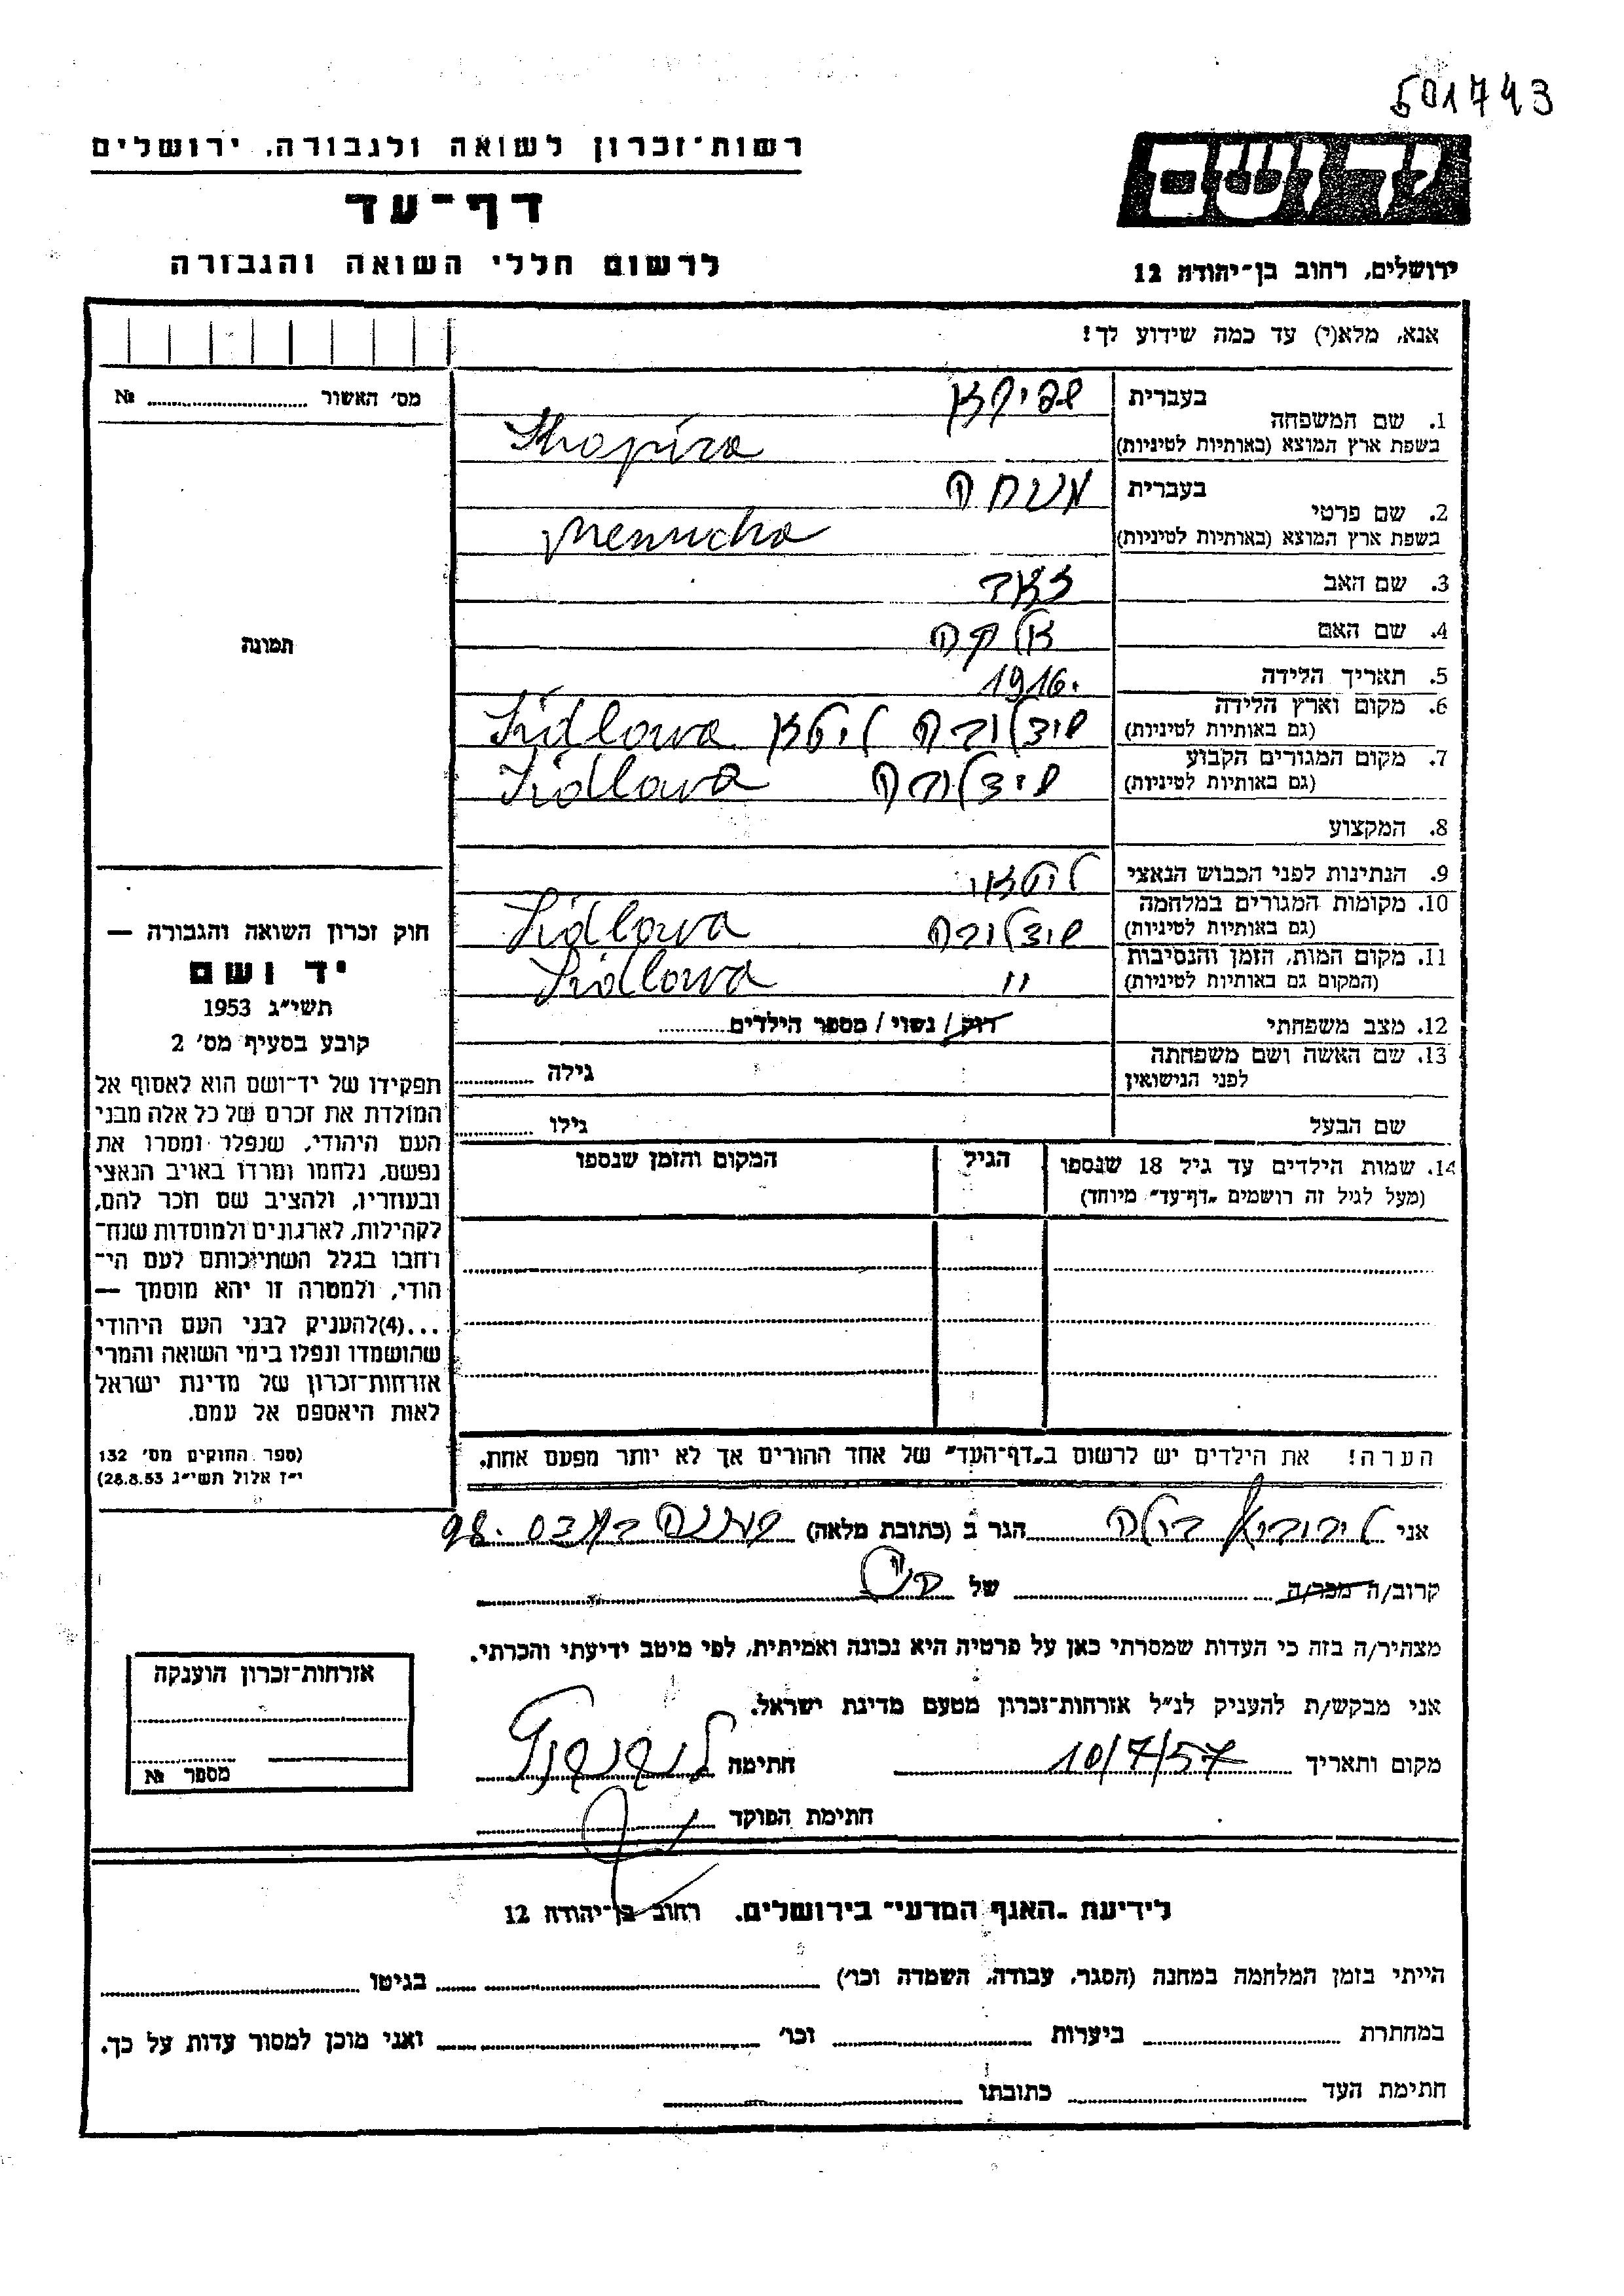 501743
רשות־זכרון לשואה ולגבורה, ירושלים
יד ושם
דף־עד
לרשום חללי השואה והגבורה
ירושלים, רחוב בן־יהודה 12
אנא, מלא(י) עד כמה שידוע לך!
מס׳ האשור № 
1. שם המשפחה בעברית שפירא
בשפת ארץ המוצא (באותיות לטיניות) Shapira
2. שם פרטי בעברית מנוחה
בשפת ארץ המוצא (באותיות לטיניות) Menucha
3. שם האב
4. שם האם
5. תאריך הלידה 1916.
6. מקום וארץ הלידה ליטא Sidlowa
(גם באותיות לטיניות)
7. מקום המגורים הקבוע שידלובה Sidlowa
(גם באותיות לטיניות)
8. המקצוע
9. הנתינות לפני הכבוש הנאצי ליטאי
10. מקומות המגורים במלחמה שידלובה Sidlowa
(גם באותיות לטיניות)
11. מקום המות, הזמן והנסיבות " Sidlowa
(המקום גם באותיות לטיניות)
12. מצב משפחתי רוק / נשוי / מספר הילדים
13. שם האשה ושם משפחתה
לפני הנישואין גילה
שם הבעל גילו
14. שמות הילדים עד גיל 18 שנספו הגיל המקום והזמן שנספו
(מעל לגיל זה רושמים „דף־עד״ מיוחד)
הערה! את הילדים יש לרשום ב„דף־העד״ של אחד ההורים אך לא יותר מפעם אחת.
תמונה
חוק זכרון השואה והגבורה —
יד ושם
תשי״ג 1953
קובע בסעיף מס׳ 2
תפקידו של יד־ושם הוא לאסוף אל
המולדת את זכרם של כל אלה מבני
העם היהודי, שנפלו ומסרו את
נפשם, נלחמו ומרדו באויב הנאצי
ובעוזריו, ולהציב שם וזכר להם,
לקהילות, לארגונים ולמוסדות שנח־
רבו בגלל השתייכותם לעם הי־
הודי, ולמטרה זו יהא מוסמך —
...(4)להעניק לבני העם היהודי
שהושמדו ונפלו בימי השואה והמרי
אזרחות־זכרון של מדינת ישראל
לאות היאספם אל עמם.
(ספר החוקים מס׳ 132
י״ז אלול תשי״ג 28.8.53)
אני הגר ב (כתובת מלאה) 98.
קרוב/ה מכר/ה של
מצהיר/ה בזה כי העדות שמסרתי כאן על פרטיה היא נכונה ואמיתית, לפי מיטב ידיעתי והכרתי.
אני מבקש/ת להעניק לנ״ל אזרחות־זכרון מטעם מדינת ישראל.
מקום ותאריך 10/7/57 חתימה
חתימת הפוקד
אזרחות־זכרון הוענקה
מספר №
לידיעת „האגף המדעי״ בירושלים. רחוב בן־יהודה 12
הייתי בזמן המלחמה במחנה (הסגר, עבודה, השמדה וכו׳) בגיטו
במחתרת ביערות וכו׳ ואני מוכן למסור עדות על כך.
חתימת העד כתובתו